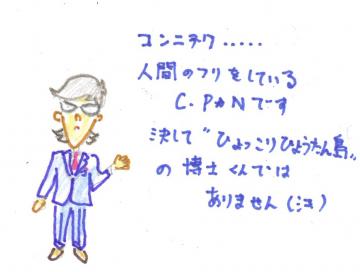 コンニチワ.....
人間のフリをしている
C.PカNです
決して"ひょっこりひょうたん島"
の博士くんでは
ありません(汗)